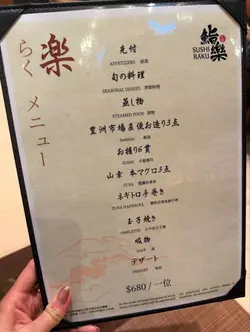 楽
らく メニュー
鮨樂
SUSHI
RAKU
先付
APPETIZERS 前菜
旬の料理
SEASONAL DISHES 季節料理
蒸し物
STEAMED FOOD 蒸物
豊洲市場直送お造り3点
Sashimi 刺身
お握り6貫
SUSHI
山幸 本マグロ3点
TUNA
ネギトロ手巻き
TUNA HANDROLL
玉子焼き
OMELETTE
吸物
SOUP 湯
デザート
DESSERT 甜品
$680 / 一位